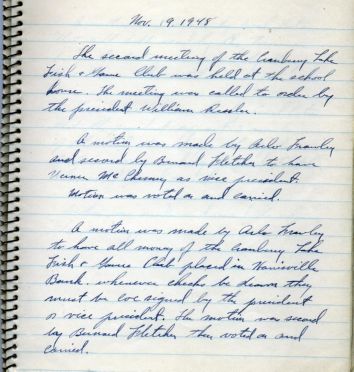 Nov. 9 1948
The second meeting of the Cranberry Lake
Fish & Game Club was held at the school
house. The meeting was called to order by
the president William Ressler.
A motion was made by Arlo Frawley
and second by Bernard Fletcher to have
Verner Mc Chesney as vice president.
Motion was voted on and carried.
A motion was made by Arlo Frawley
to have all money of the Cranberry Lake
Fish & Game Club placed in Harrisville
Bank. whenever checks be drawn they
must be coe signed by the president
or vice president. The motion was second
by Bernard Fletcher they voted on and
carried.